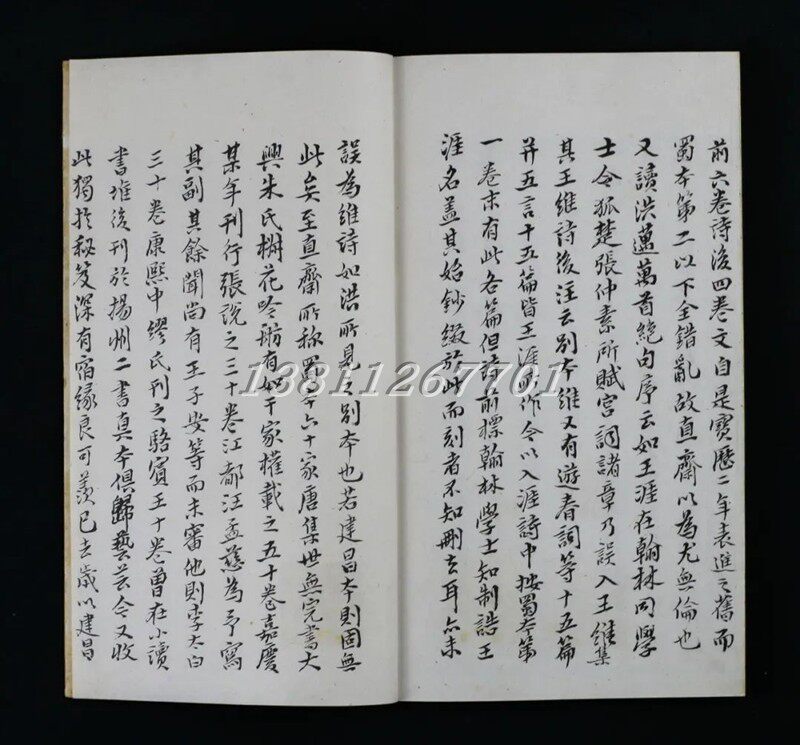 前六卷詩後四卷文自是寶曆二年表進之舊而
蜀本第二以下全錯亂故直齋以為尤無倫也
又讀洪邁萬首絕句序云如王涯在翰林同學
士令狐楚張仲素所賦宮詞諸章乃誤入王維集
其王維詩後注云別本維又有遊春詞等十五篇
并五言十五篇皆王涯所作今以入涯詩中按蜀本第
一卷末有此各篇但詩前標翰林學士知制誥王
涯名蓋其始鈔綴於此而刻者不知刪去耳亦未
誤為維詩如洪所見之別本也若建昌本則固無
此矣至直齋所稱蜀本六十家唐集世無完書大
興朱氏椒花吟舫有如干家權載之五十卷嘉慶
某年刊行張說之三十卷江都汪孟慈為予寫
其副其餘聞尚有王子安等而未審他則李太白
三十卷康熙中繆氏刊之駱賓王十卷曾在小讀
書堆後刊於揚州二書真本俱歸藝芸今又收
此獨於秘笈深有宿緣良可羨已去歲以建昌
13811267701